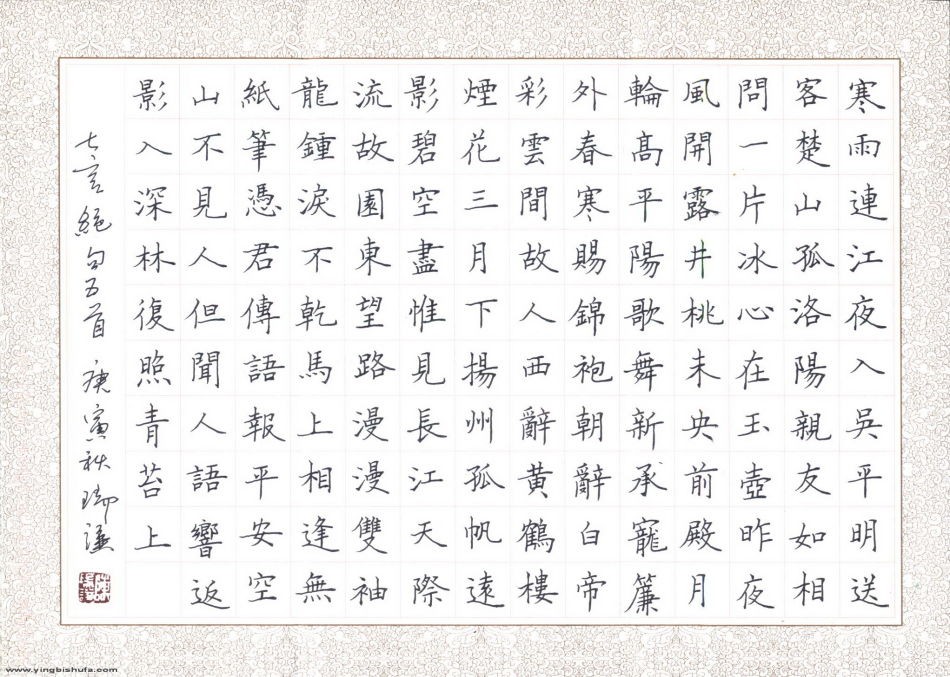 寒雨連江夜入吳平明送
客楚山孤洛陽親友如相
問一片冰心在玉壺昨夜
風開露井桃未央前殿月
輪高平陽歌舞新承寵簾
外春寒賜錦袍朝辭白帝
彩雲間故人西辭黃鶴樓
煙花三月下揚州孤帆遠
影碧空盡惟見長江天際
流故園東望路漫漫雙袖
龍鍾淚不乾馬上相逢無
紙筆憑君傳語報平安空
山不見人但聞人語響返
影入深林復照青苔上
七言絕句五首 庚寅秋
www.yingbishufa.com